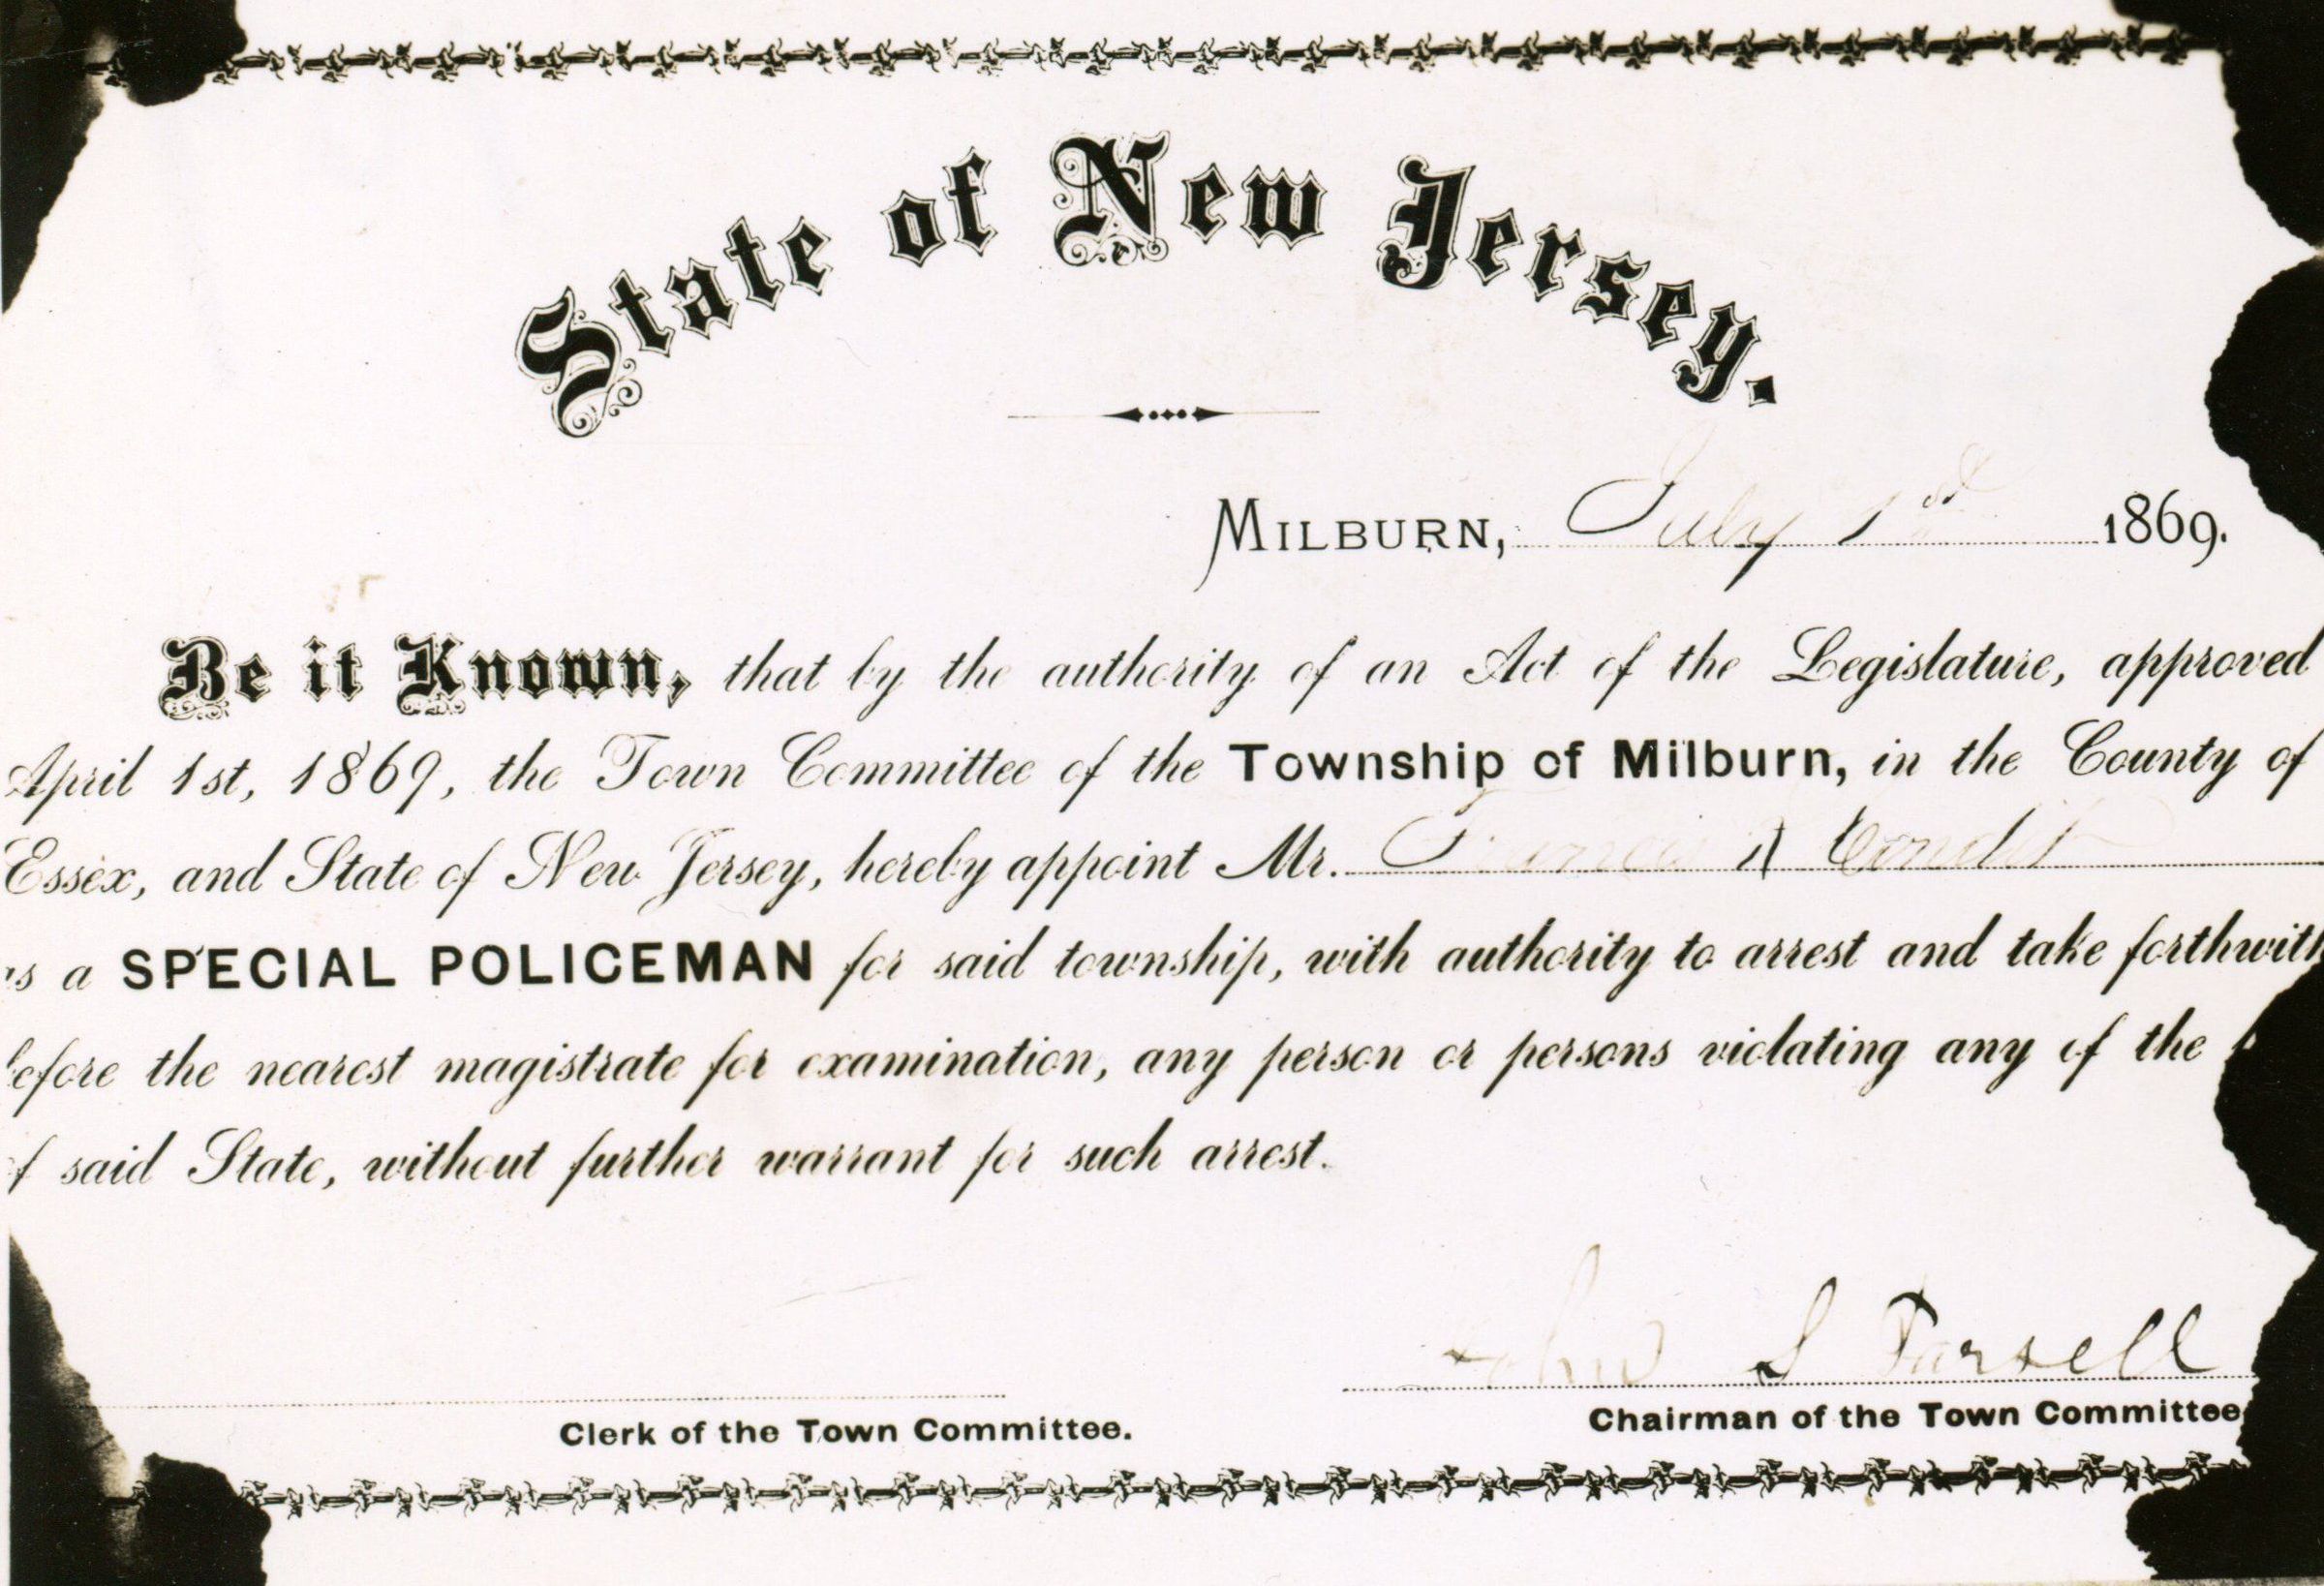 State of New Jersey.
MILBURN, July 1st 1869.
Be it Known, that by the authority of an Act of the Legislature, approved
April 1st, 1869, the Town Committee of the Township of Milburn, in the County of
Essex, and State of New Jersey, hereby appoint Mr. Francis A Condit
as a SPECIAL POLICEMAN for said township, with authority to arrest and take forthwith
before the nearest magistrate for examination, any person or persons violating any of the
of said State, without further warrant for such arrest.
John S Parsell
Clerk of the Town Committee.
Chairman of the Town Committee